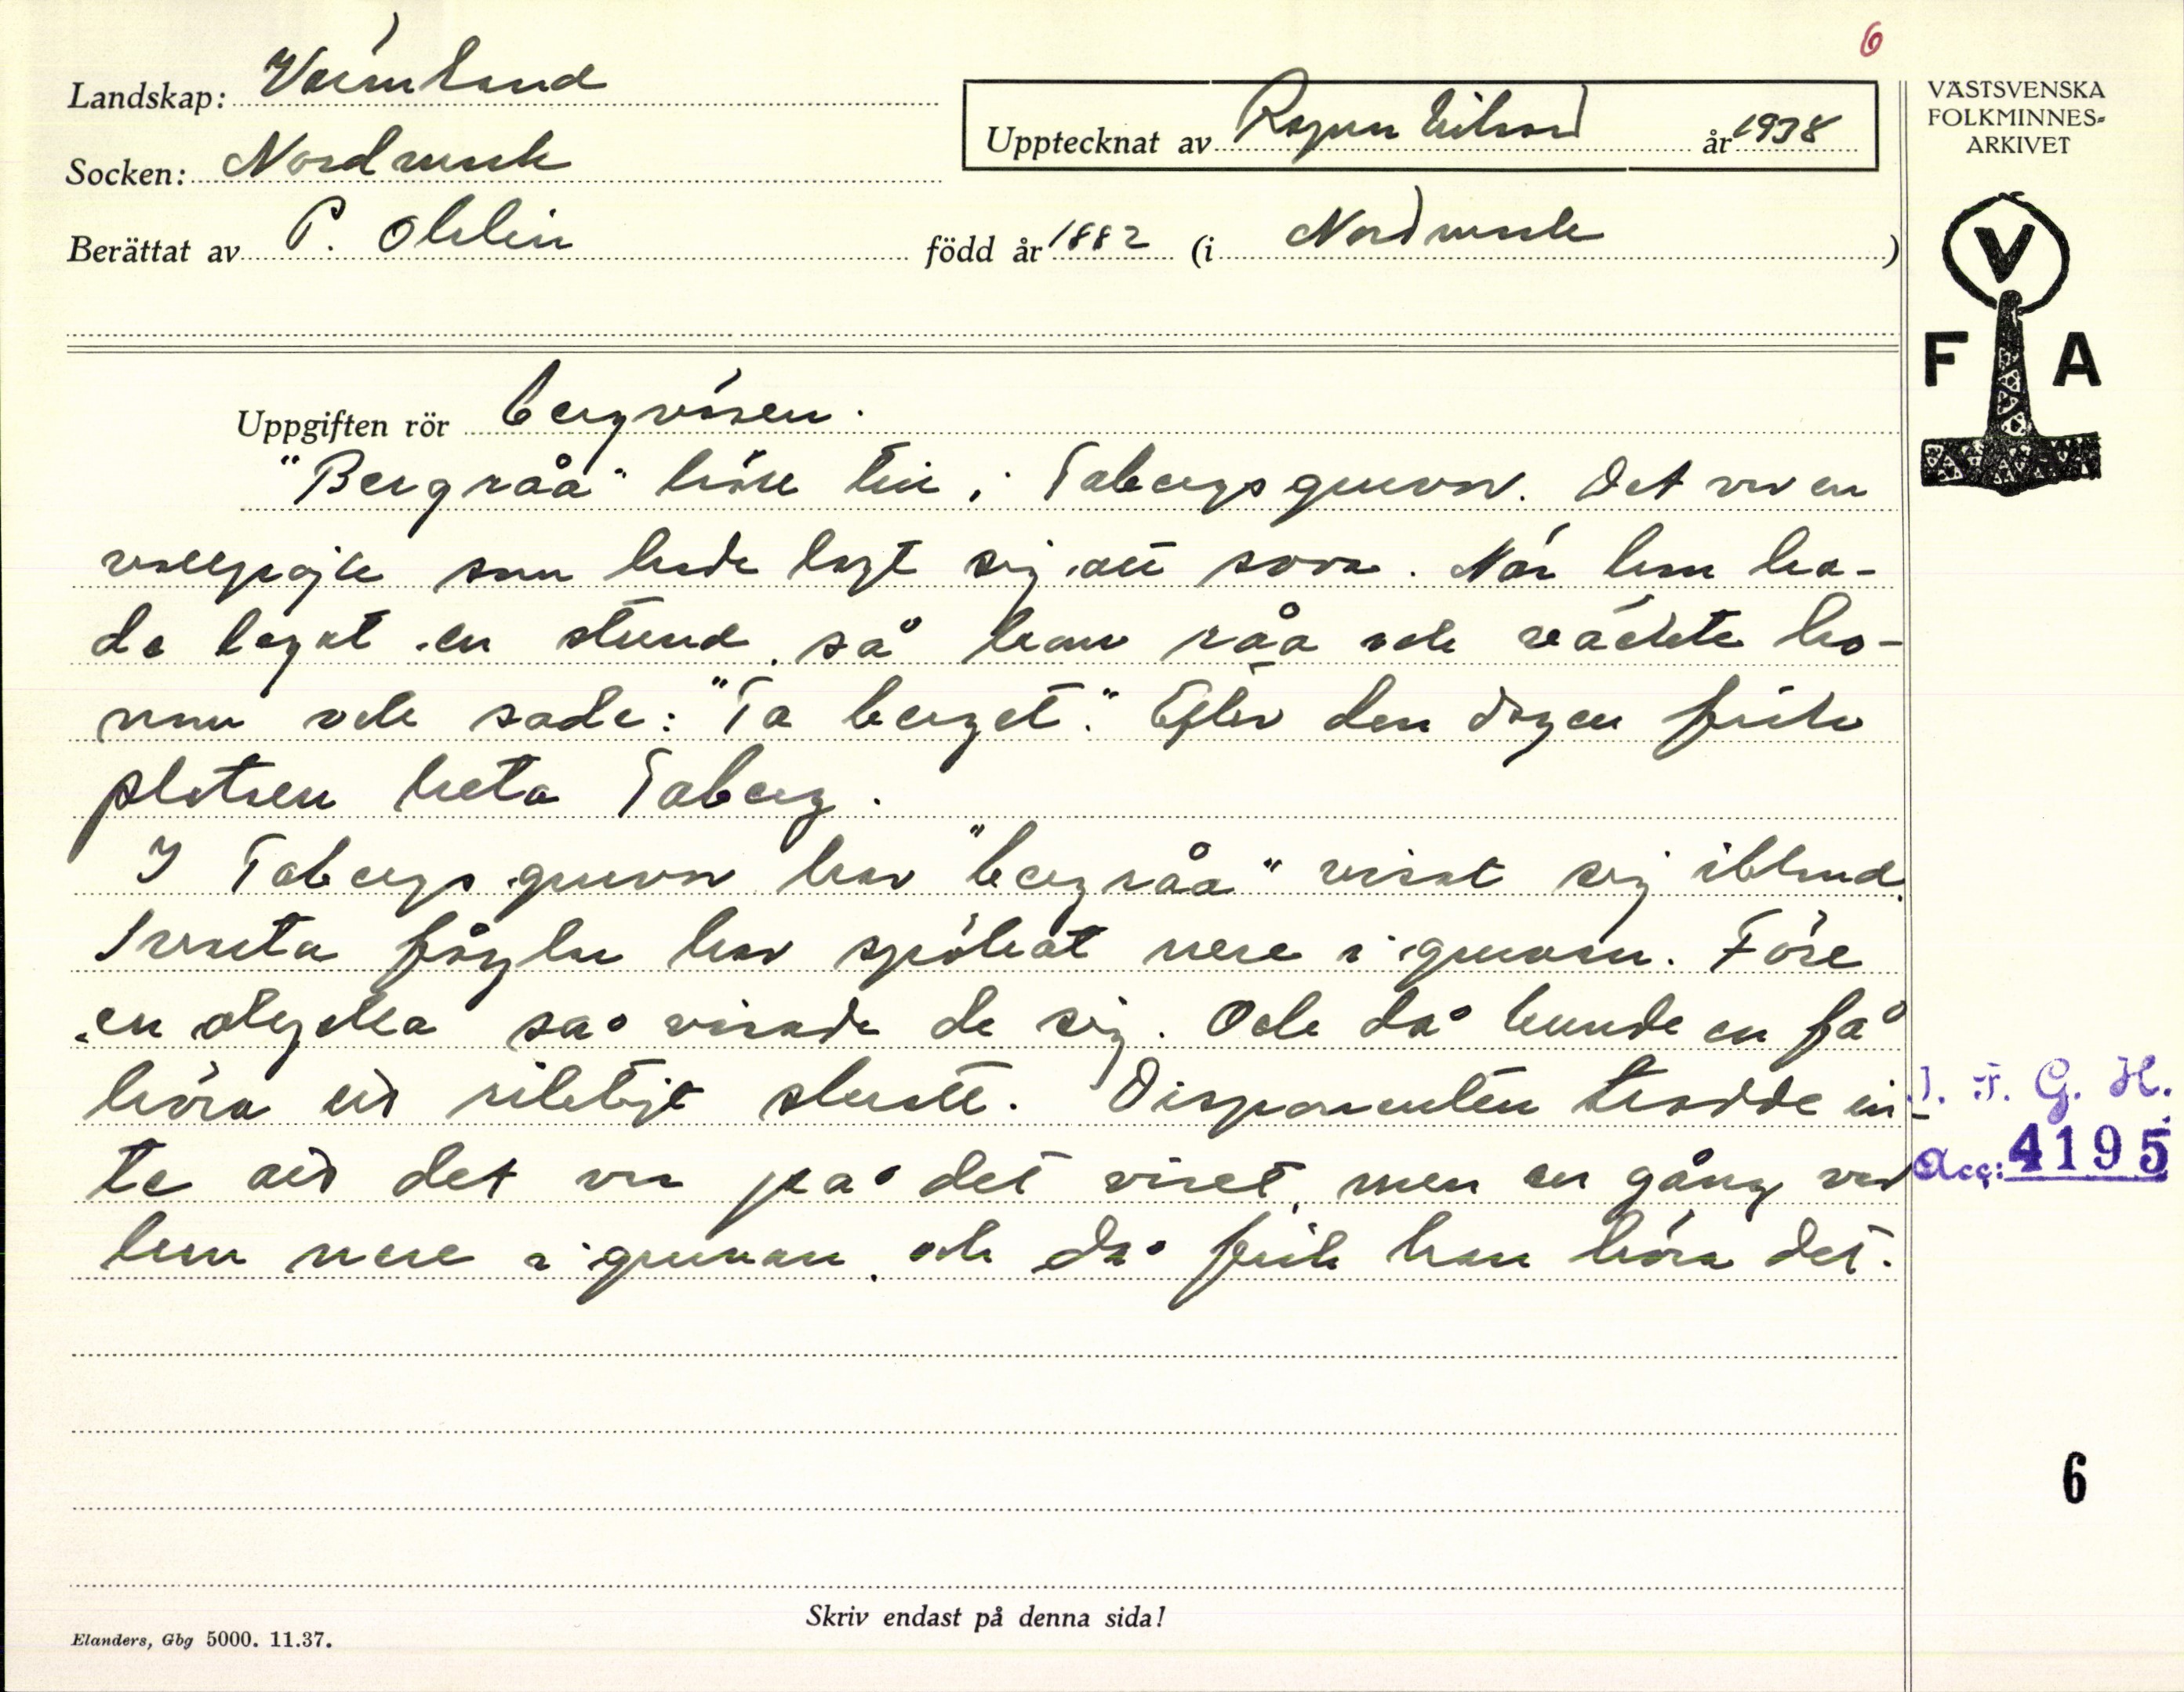 6
Landskap: Värmland
Upptecknat av Ragnar Nilsson år 1938
VÄSTSVENSKA
FOLKMINNES-
ARKIVET
Socken: Nordmark
Berättat av P. Ohlin född år 1882 (i Nordmark)
V
F A
Uppgiften rör bergväsen.
"Bergråa" höll till i Tabergsgruvor. Det var en
vallpojke som hade lagt sig att sova. När han ha-
de legat en stund, så kom råa och väckte ho-
nom och sade: "Ta berget." Efter den dagen fick
platsen heta Taberg.
I Tabergsgruvor har "bergråa" visat sig ibland.
Svarta fåglar har spökat nere i gruvan. Före
en olycka så visade de sig. Och då kunde en få
höra ett riktigt skratt. Disponenten trodde in-
te att det var på det viset, men en gång var
han nere i gruvan, och då fick han höra det.
I. F. G. H.
Acc: 4195
6
Skriv endast på denna sida!
Elanders, Gbg 5000. 11.37.